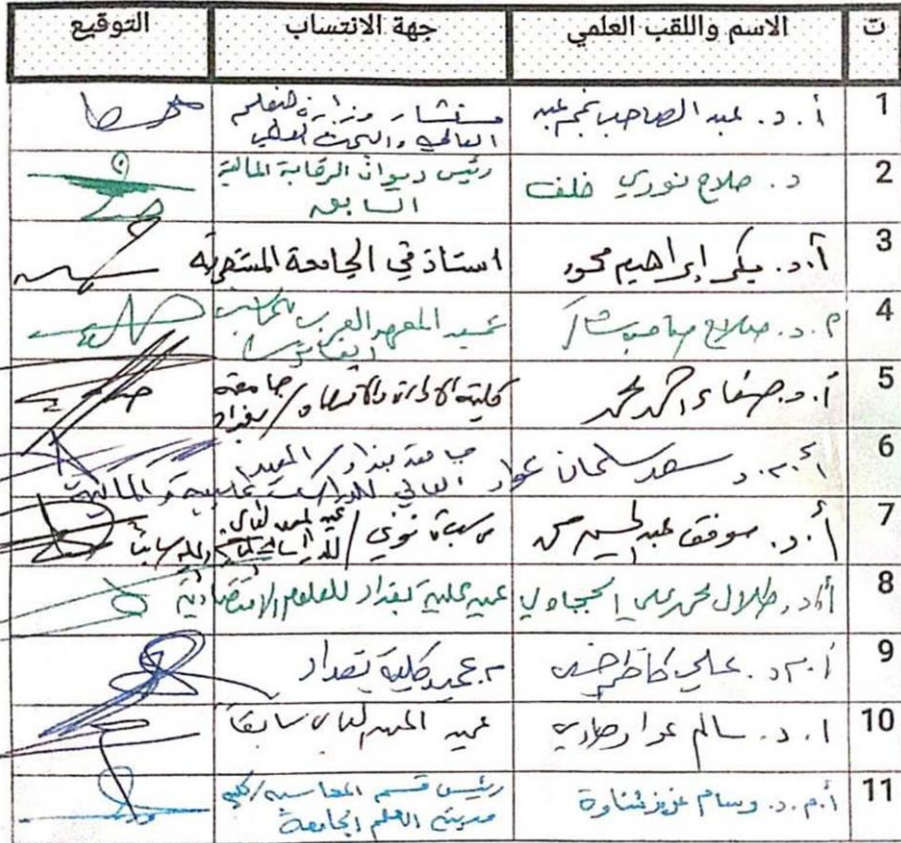 ت الاسم واللقب العلمي جهة الانتساب التوقيع
1 أ. د. عبد الصاحب نجم عبد مستشار وزارة التعليم
العالي والبحث العلمي
2 د. صلاح نوري خلف رئيس ديوان الرقابة المالية
السابق
3 أ.د. بكر إبراهيم محمود استاذ في الجامعة المستنصرية
4 م.د. صلاح صاحب شاكر عميد المعهد العربي للمحاسبين
القانونيين
5 أ.د. صفاء احمد محمد كلية الادارة والاقتصاد / جامعة
بغداد
6 أ.م.د سعد سلمان عواد جامعة بغداد / المعهد
العالي للدراسات المحاسبية و المالية
7 أ.د. موفق عبد الحسين
8 أ.د. طلال محمد علي الججاوي عميد كلية بغداد للعلوم الاقتصادية
9 أ.م.د. علي كاظم كلية بغداد
10 أ. د. سالم عواد عميد المعهد العالي سابقاً
11 أ.م.د. وسام عزيز شناوة رئيس قسم المحاسبة / كلية
مدينة العلم الجامعة